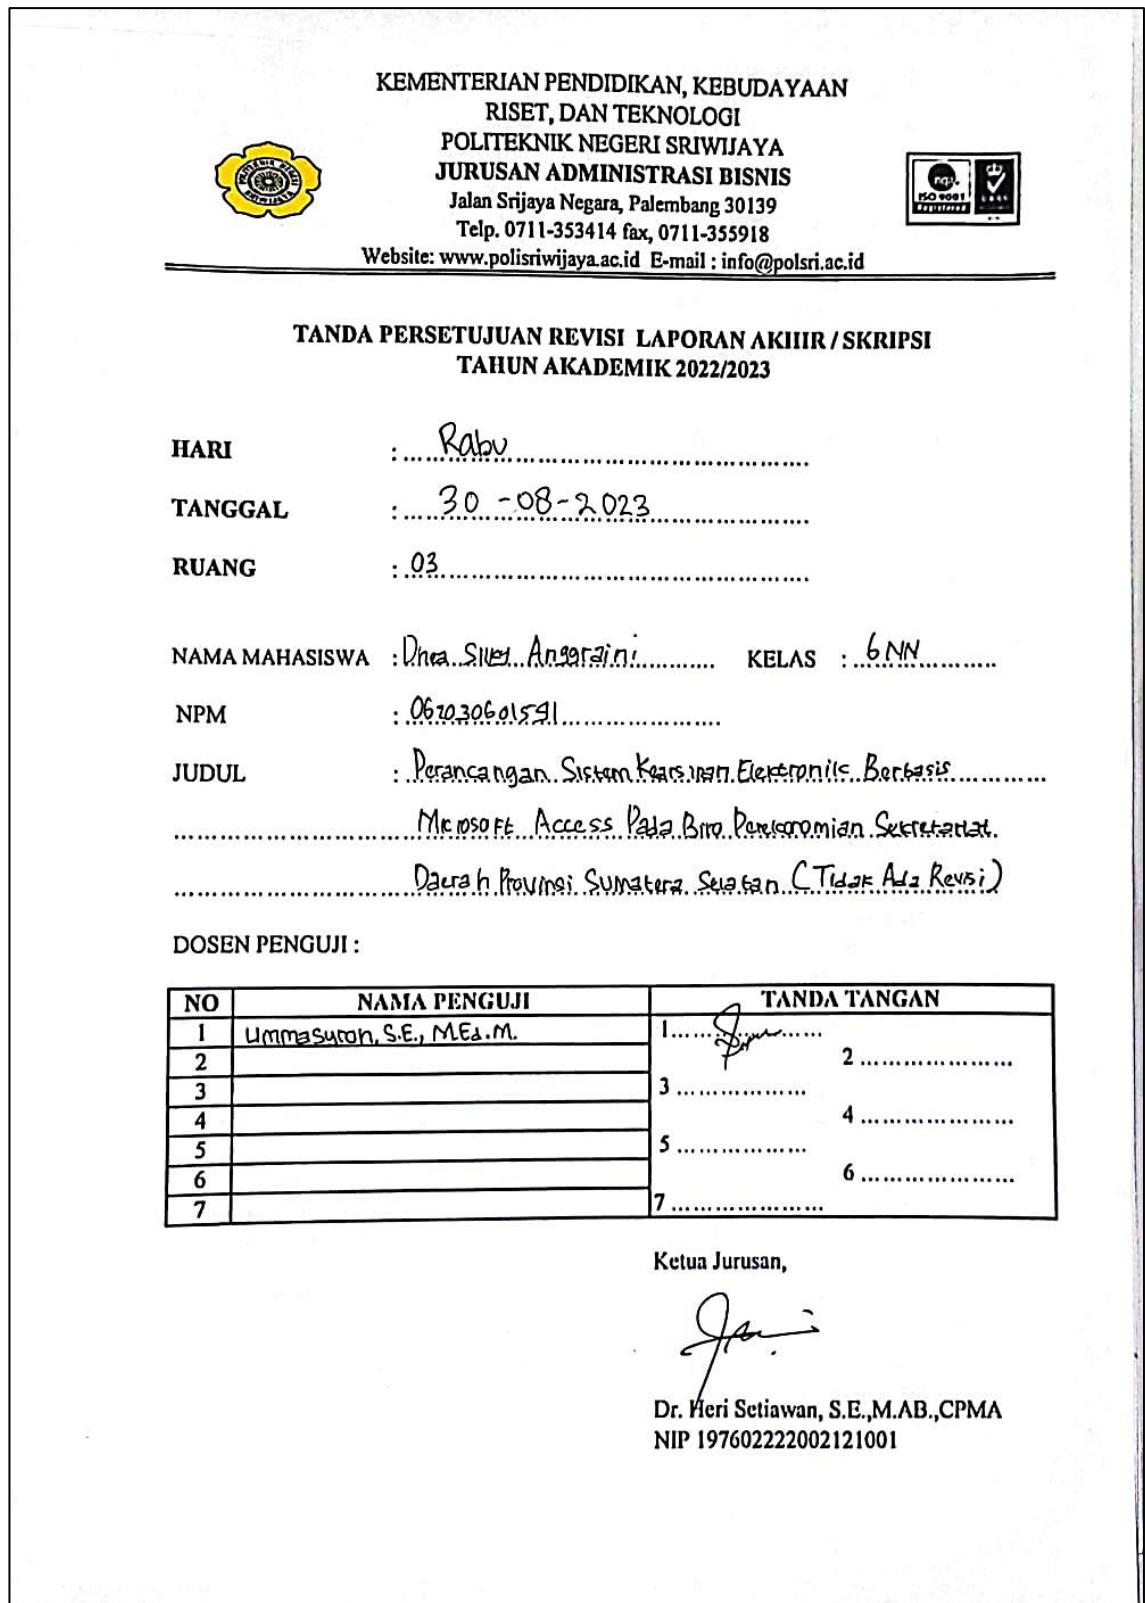 KEMENTERIAN PENDIDIKAN, KEBUDAYAAN
RISET, DAN TEKNOLOGI
POLITEKNIK NEGERI SRIWIJAYA
JURUSAN ADMINISTRASI BISNIS
Jalan Srijaya Negara, Palembang 30139
Telp. 0711-353414 fax, 0711-355918
Website: www.polisriwijaya.ac.id E-mail : info@polsri.ac.id
nqa.
ISO 9001
TANDA PERSETUJUAN REVISI LAPORAN AKHIR / SKRIPSI
TAHUN AKADEMIK 2022/2023
HARI : Rabu
TANGGAL : 30 -08-2023
RUANG : 03
NAMA MAHASISWA : Dhea Anggraini KELAS : 6 NN
NPM : 062030601591
JUDUL : Perancangan Sistem Kearsipan Elektronik Berbasis
Microsoft Access Pada Biro Perekonomian Sekretariat
Daerah Provinsi Sumatera Selatan (Tidak Ada Revisi)
DOSEN PENGUJI :
NO NAMA PENGUJI TANDA TANGAN
1 Ummasyroh, S.E., M.Ed.M. 1
2 2
3 3
4 4
5 5
6 6
7 7
Ketua Jurusan,
Dr. Heri Setiawan, S.E.,M.AB.,CPMA
NIP 197602222002121001